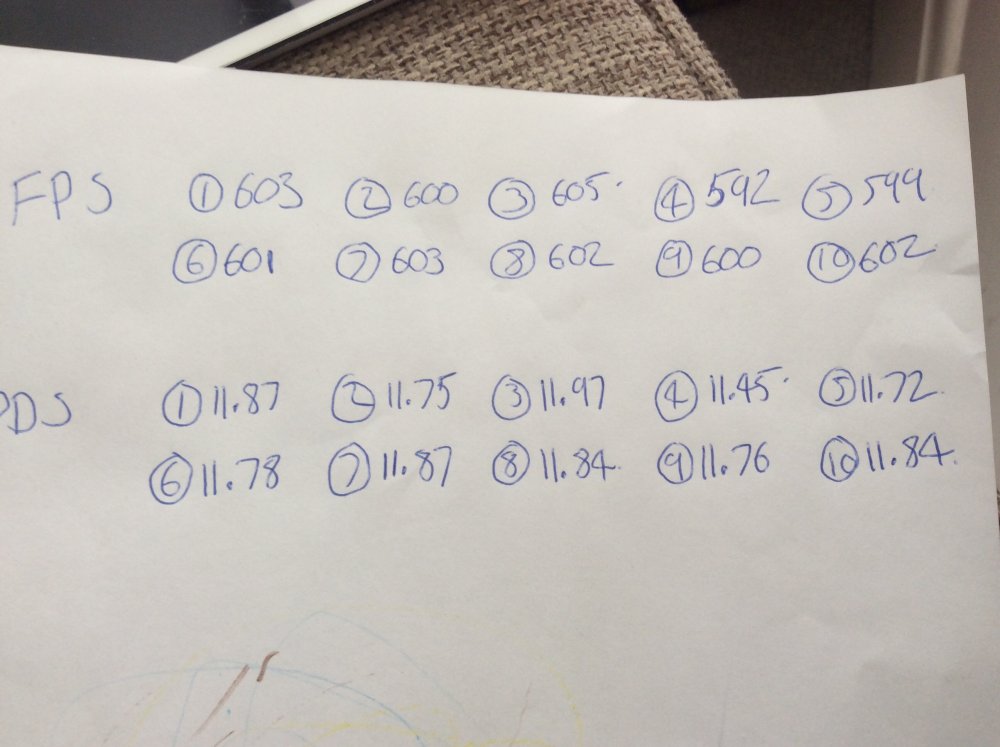 FPS ① 603 ② 600 ③ 605 ④ 592 ⑤ 599
⑥ 601 ⑦ 603 ⑧ 602 ⑨ 600 ⑩ 602
PDS ① 11.87 ② 11.75 ③ 11.97 ④ 11.45 ⑤ 11.72
⑥ 11.78 ⑦ 11.87 ⑧ 11.84 ⑨ 11.76 ⑩ 11.84